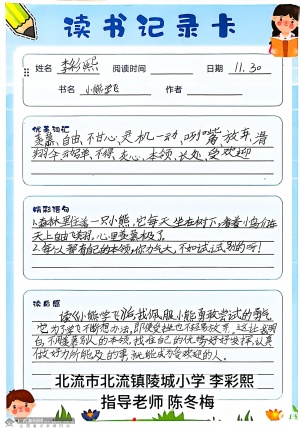 读书记录卡
姓名 李彩熙 阅读时间 日期 11.30
书名 小熊学飞 作者
优美词汇
羡慕、自由、不甘心、灵机一动、放弃、滑翔伞
灰心、本领、长处、受欢迎
精彩语句
1.森林里住着一只小熊,它每天坐在树下,看着小鸟们在
天上自由飞翔,心里羡慕极了。
2.每人都有自己的本领,你力气大,不如试试别的呀!
读后感
读《小熊学飞》后,我佩服小熊勇敢尝试的勇气
它为了学飞不断想办法,即便受挫也不轻易放弃。这让我明
白,不用羡慕别人的本领,找准自己的优势好好发挥,认真
做好力所能及的事,就能成为受欢迎的人。
北流市北流镇陵城小学 李彩熙
指导老师 陈冬梅